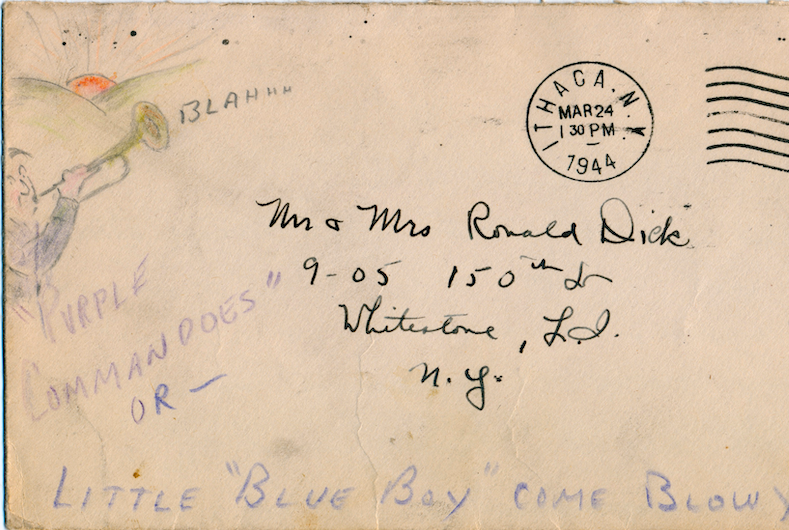 BLAHHH
ITHACA, N.Y.
MAR 24
1 30 PM
1944
Mr & Mrs Ronald Dick
9-05 150th St
Whitestone, L.I.
N.Y.
"PURPLE
COMMANDOES"
OR —
LITTLE "BLUE BOY" COME BLOW Y